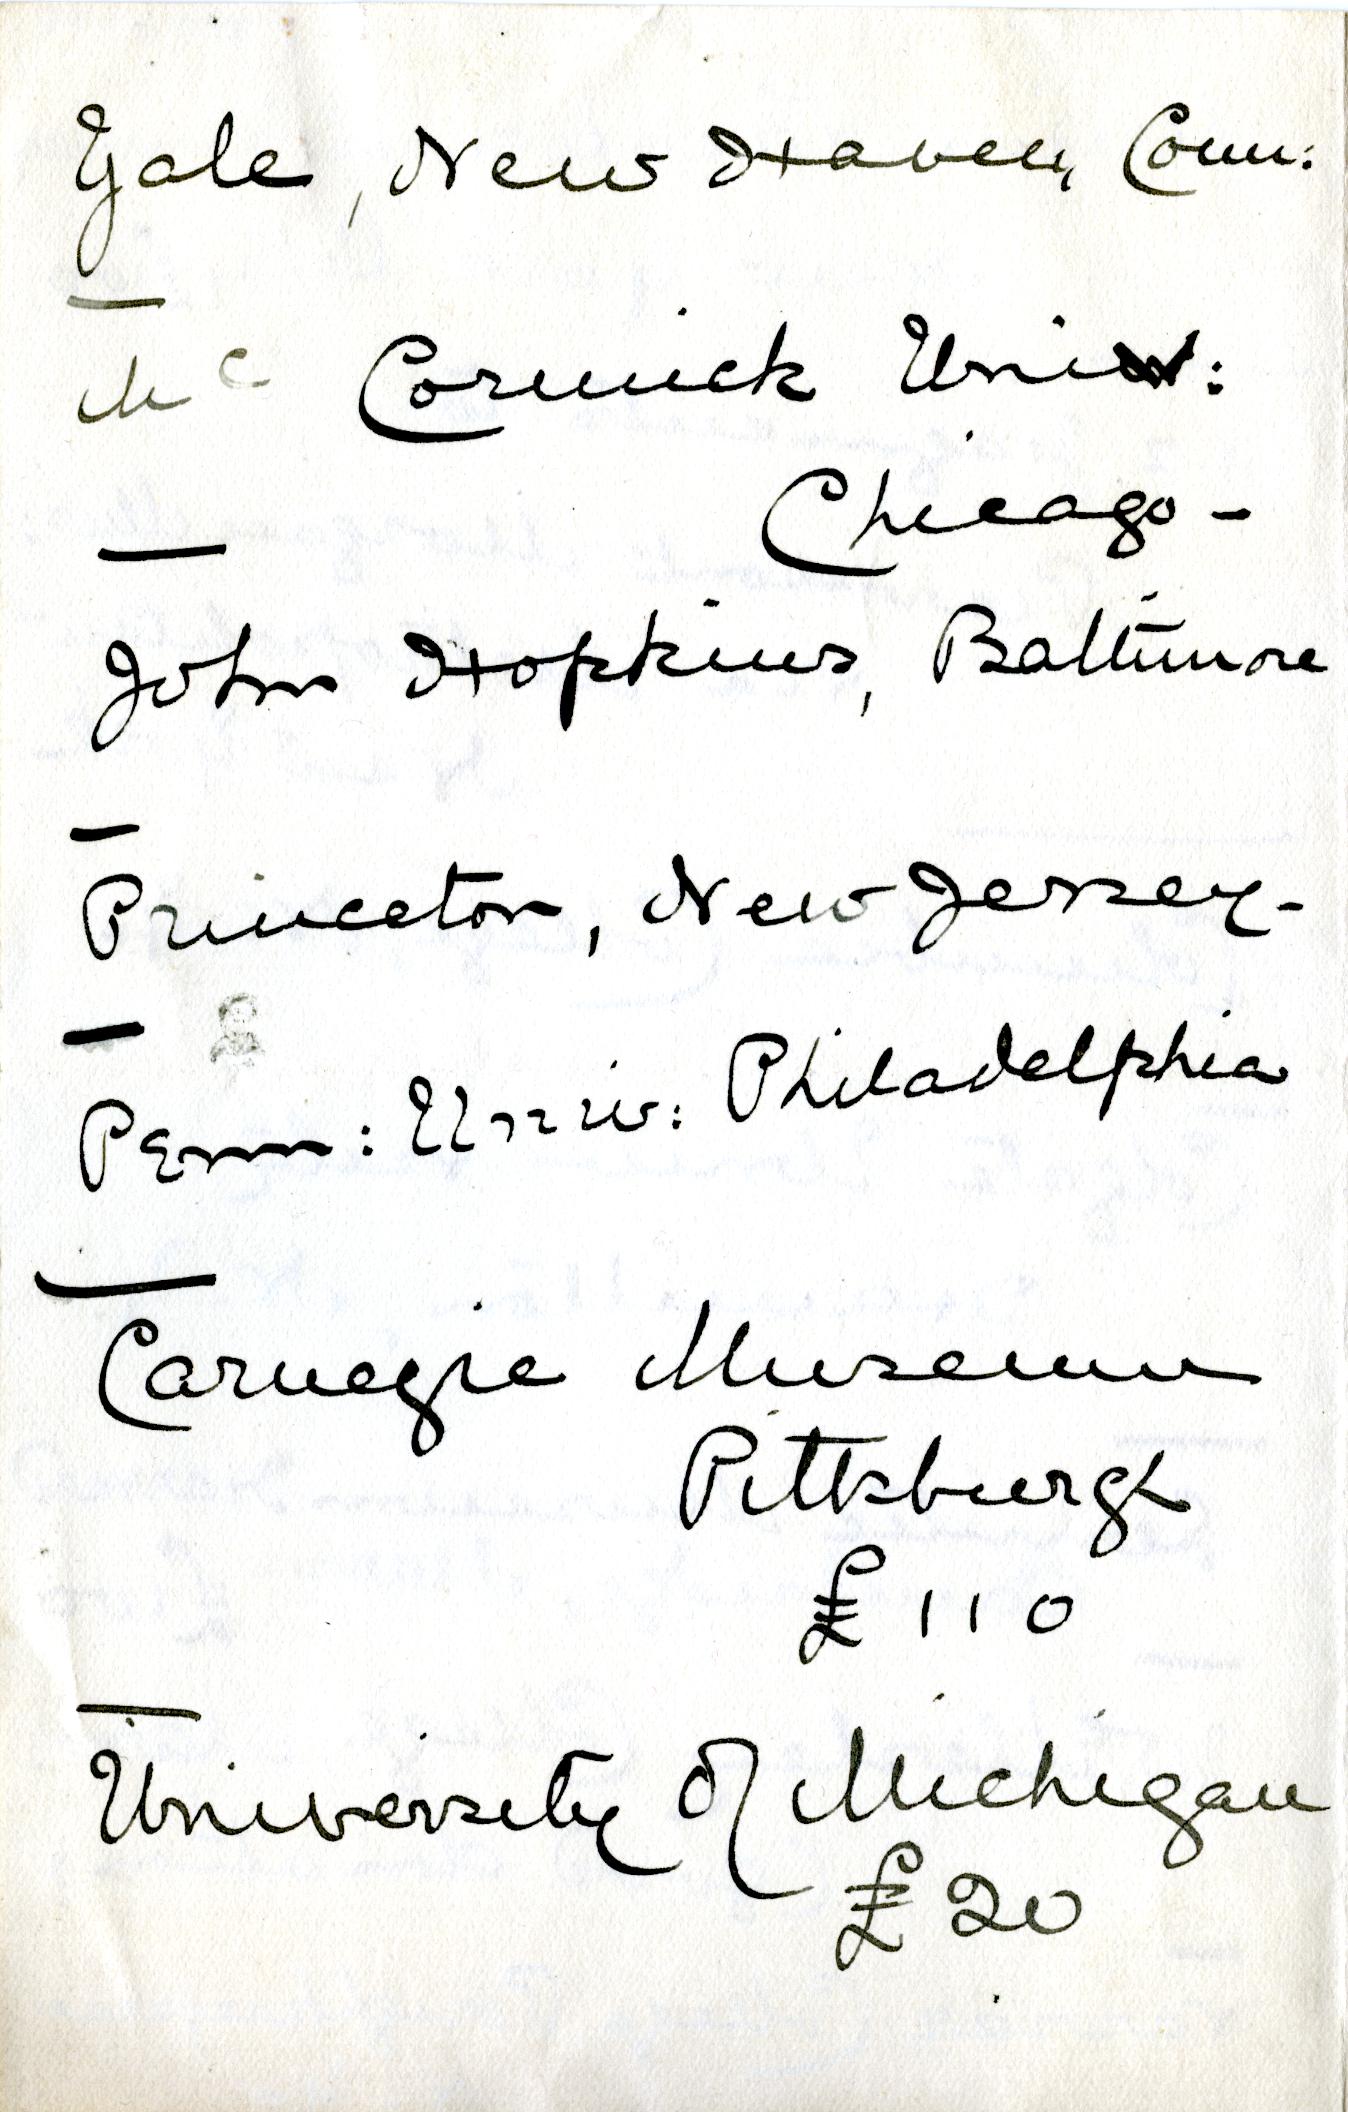 Yale, New Haven, Conn:
Mc Cormick Univ:
Chicago -
John Hopkins, Baltimore
Princeton, New Jersey -
Penn: Univ: Philadelphia
Carnegie Museum
Pittsburgh
£110
University of Michigan
£20